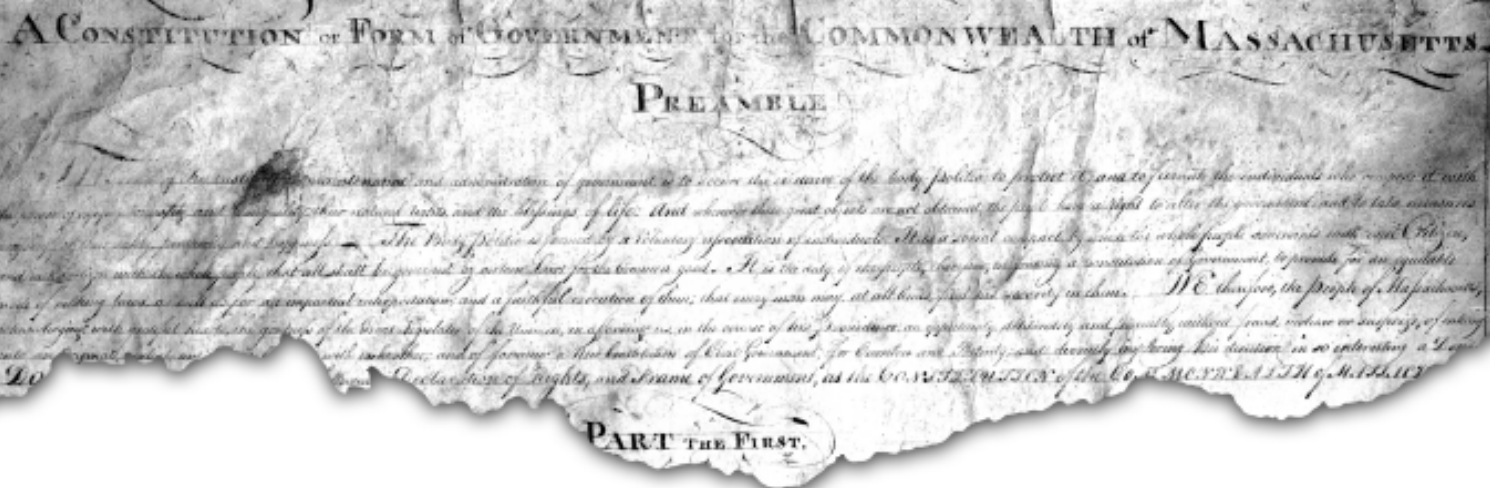 A CONSTITUTION or FORM of GOVERNMENT for the COMMONWEALTH of MASSACHUSETTS
PREAMBLE
maintenance and administration of government is to secure the existence of the body politic to protect it and to furnish the individuals who compose it with
the power of enjoying safety and their natural rights and the blessings of life: And whenever these great objects are not obtained the people have a right to alter the government and to take measures
and happiness The Body Politic is formed by a voluntary association of individuals. It is a social compact by which the whole people covenants with each Citizen,
with the whole people that all shall be governed by certain Laws for the Common good. It is the duty of the people, a constitution of Government, to provide for an equitable
of making laws as well as for an impartial interpretation and a faithful execution of them; that every man may, at all times find his security in them. WE therefore, the people of Massachusetts,
with hearts, the goodness of the Great Legislator of the Universe, in affording us in the course of His Providence, an opportunity, deliberately and peaceably, without fraud, violence or surprize, of entering
with each other; and of forming a New Constitution of Civil Government, for Ourselves and Posterity and devoutly imploring His direction in so interesting a
DO Declaration of Rights, and Frame of Government, as the CONSTITUTION of the COMMONWEALTH of MASSACH
PART THE FIRST.